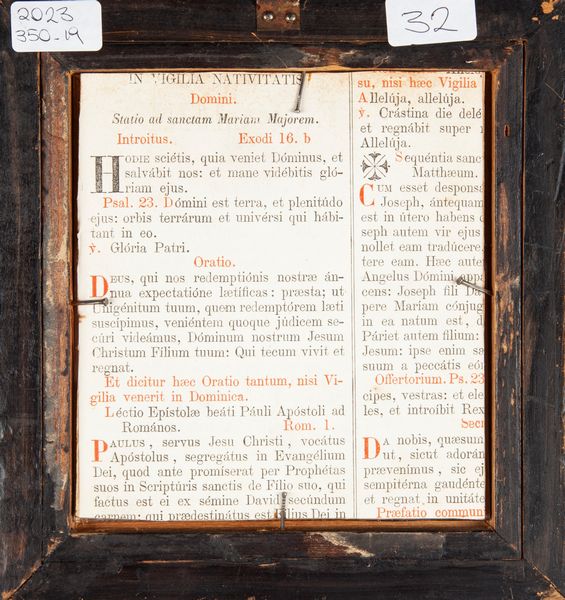 2023
350-19
32
IN VIGILIA NATIVITATIS
Domini.
Statio ad sanctam Mariam Majorem.
Introitus. Exodi 16. b
HODIE sciétis, quia veniet Dóminus, et
salvábit nos: et mane vidébitis gló-
riam ejus.
Psal. 23. Dómini est terra, et plenitúdo
ejus: orbis terrárum et univérsi qui hábi-
tant in eo.
℣. Glória Patri.
Oratio.
DEUS, qui nos redemptiónis nostræ án-
nua expectatióne lætíficas: præsta; ut
Unigénitum tuum, quem redemptórem læti
suscípimus, veniéntem quoque júdicem se-
cúri videámus, Dóminum nostrum Jesum
Christum Fílium tuum: Qui tecum vivit et
regnat.
Et dicitur hæc Oratio tantum, nisi Vi-
gilia venerit in Dominica.
Léctio Epístolæ beáti Páuli Apóstoli ad
Romános. Rom. 1.
PAULUS, servus Jesu Christi, vocátus
Apóstolus, segregátus in Evangélium
Dei, quod ante promíserat per Prophétas
suos in Scriptúris sanctis de Fílio suo, qui
factus est ei ex sémine David secúndum
carnem: qui prædestinátus est Fílius Dei in
su, nisi hæc Vigilia
Allelúja, allelúja.
℣. Crástina die delé
et regnábit super
Allelúja.
Sequéntia sanc
Matthæum.
CUM esset despons
Joseph, ántequam
est in útero habens
seph autem vir ejus
nollet eam tradúcere,
tere eam. Hæc aute
Angelus Dómini appá
cens: Joseph fili Da
pere Mariam cónjug
in ea natum est, d
Páriet autem fílium:
Jesum: ipse enim sa
suum a peccátis eó
Offertorium. Ps. 23
cipes, vestras: et ele
les, et introíbit Rex
Secr
DA nobis, quæsum
ut, sicut adorán
prævenímus, sic ej
sempitérna gaudénte
et regnat in unitáte
Præfatio commun